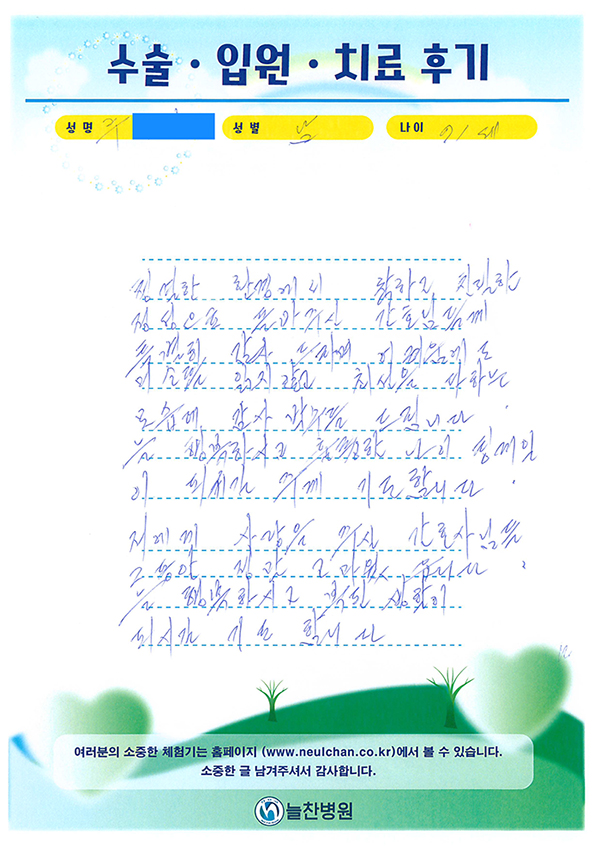 수술 · 입원 · 치료 후기
성명 주 성별 남 나이 세
친절한 환경에서 착하고 친절한
정성으로 돌봐주신 간호님들께
특별히 감사 드리며 어려움에도
미소를 잃지않고 최선을 다하는
모습에 감사 박수를 드립니다.
늘 행복하시고
이 되시길 주께 기도합니다.
저에게 사랑을 주신 간호사님들
그동안 정말 고마웠습니다.
늘 행복하시고 생활이
되시길 기도 합니다
여러분의 소중한 체험기는 홈페이지 (www.neulchan.co.kr)에서 볼 수 있습니다.
소중한 글 남겨주셔서 감사합니다.
늘찬병원